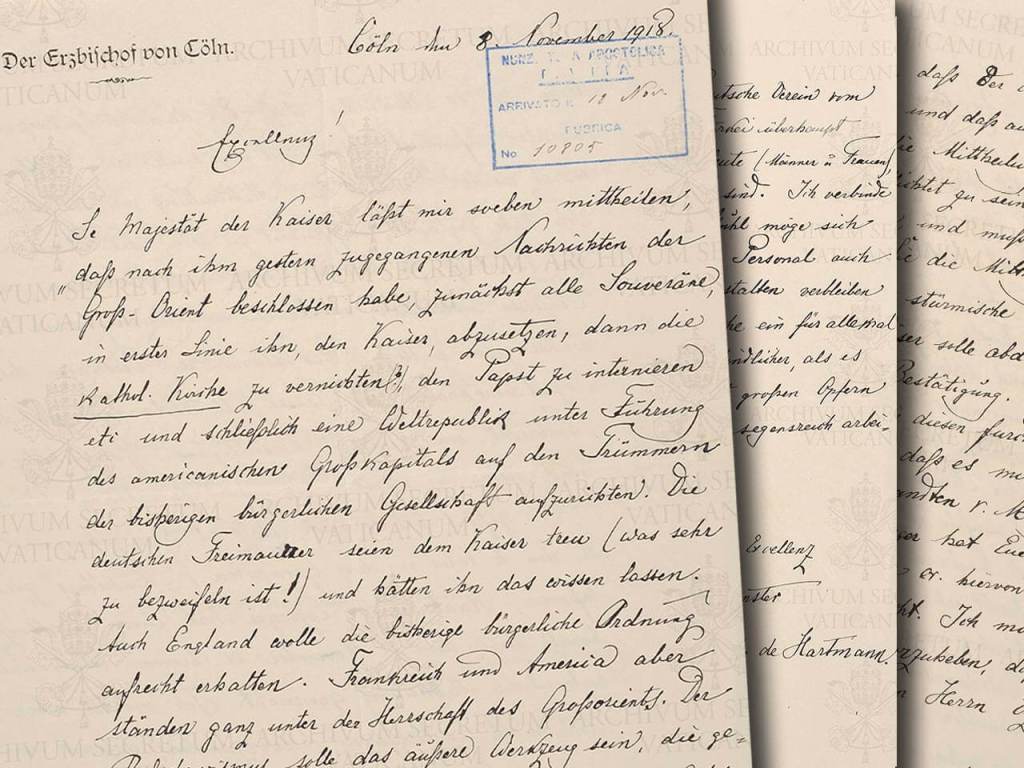 Der Erzbischof von Cöln.
Cöln den 8. November 1918.
NUNZ APOSTOLICA
ARRIVATO IL 10 Nov.
RUBRICA
No 10805
Excellenz!
Se Majestät der Kaiser läßt mir soeben mittheilen,
"daß nach ihm gestern zugegangenen Nachrichten der
Groß-Orient beschlossen habe, zunächst alle Souveräne,
in erster Linie ihn, den Kaiser, abzusetzen, dann die
kathol. Kirche zu vernichten(?), den Papst zu internieren
etc und schließlich eine Weltrepublik unter Führung
des americanischen Großkapitals auf den Trümmern
der bisherigen bürgerlichen Gesellschaft aufzurichten. Die
deutschen Freimaurer seien dem Kaiser treu (was sehr
zu bezweifeln ist!) und hätten ihn das wissen lassen.
Auch England wolle die bisherige bürgerliche Ordnung
aufrecht erhalten. Frankreich und America aber
ständen ganz unter der Herrschaft des Großorients. Der
solle das äußere Werkzeug sein, die ge=
Verein vom
überhaupt
(Männer u Frauen)
sind. Ich verbinde
möge sich
Personal auch
verbleiben
ein für allemal
als es
großen Opfern
segensreich arbei-
Excellenz
de Hartmann.
daß Der
und daß
die
zu sein
und muß
die
stürmische
solle
Bestätigung.
diesen
daß es
v.
hat
er. hiervon
Ich
Herrn
ARCHIVUM SECRETUM
VATICANUM